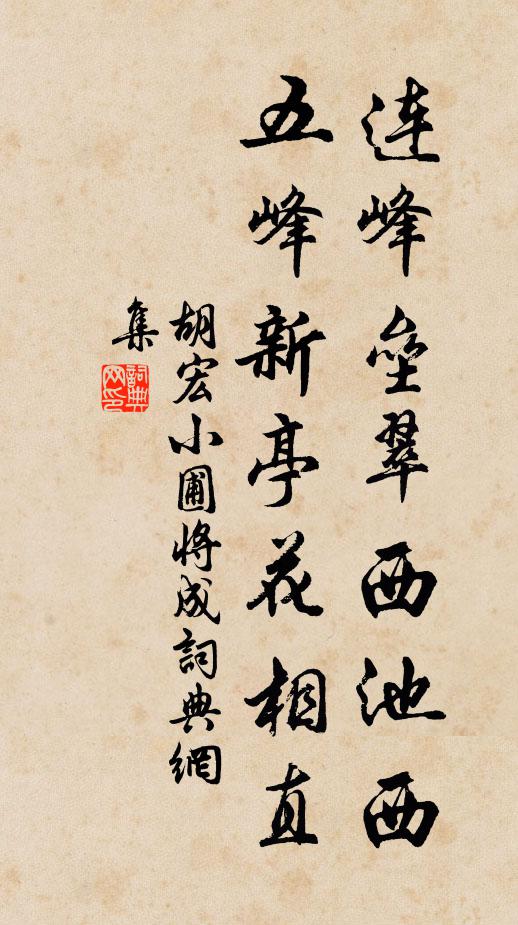 連峰壘翠西池西
五峰新亭花相直
胡宏小圃將成詞典網
集
詞典
网印